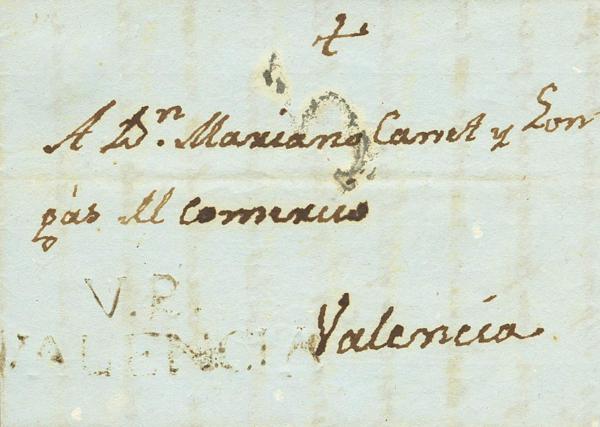 A Dn. Mariano Canet y Com
pas del Comercio
V.R.
VALENCIA
Valencia